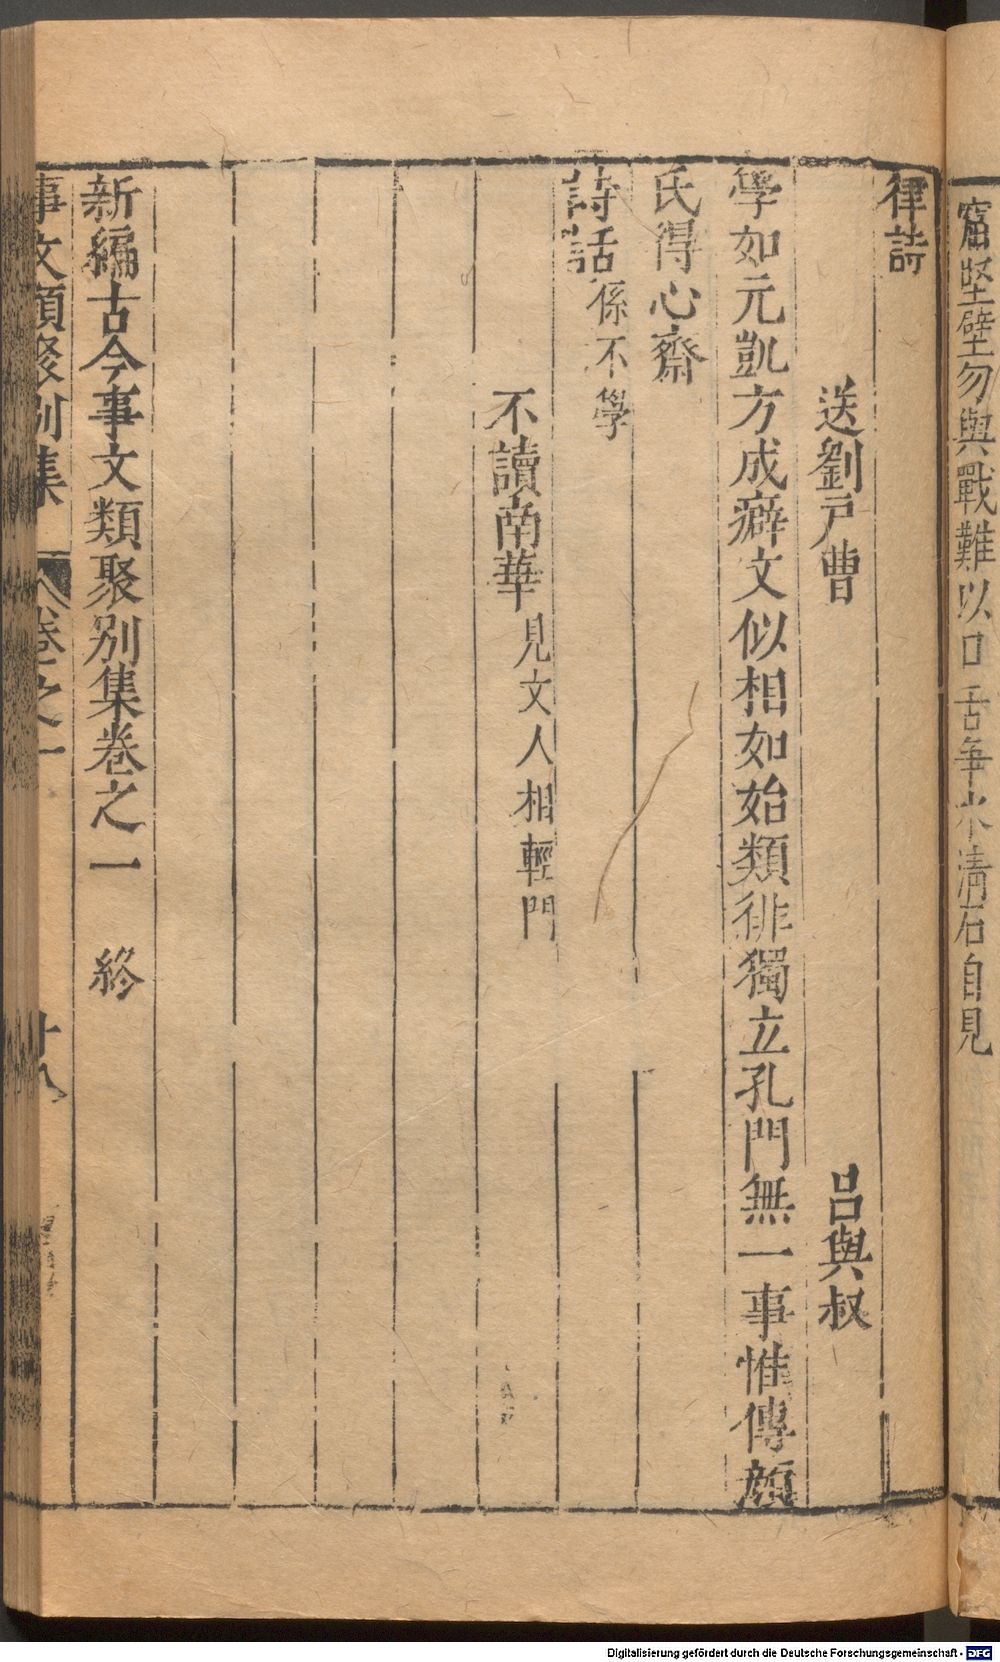 窟堅壁勿與戰難以口舌爭水清石自見
律詩
送劉戶曹 呂與叔
學如元凱方成癖文似相如始類徘獨立孔門無一事惟傳顏
氏得心齋
詩話係不學
不讀南華見文人相輕門
新編古今事文類聚別集卷之一 終
事文類聚別集 卷之一 十八
Digitalisierung gefördert durch die Deutsche Forschungsgemeinschaft - DFG